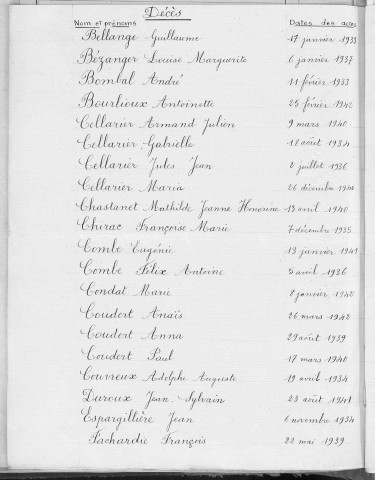 Décès
Nom et prénoms Dates des actes
Bellange Guillaume 17 janvier 1933
Bézanger Louise Marguerite 6 janvier 1937
Bombal André 11 février 1933
Bourlioux Antoinette 25 février 1942
Cellarier Armand Julien 9 mars 1940
Cellarier Gabrielle 12 août 1934
Cellarier Jules Jean 2 juillet 1936
Cellarier Maria 26 décembre
Chastanet Mathilde Jeanne Honorine 13 avril 1940
Chirac Françoise Marie 7 décembre 1935
Combe Eugénie 13 janvier 1941
Combe Félix Antoine 5 avril 1936
Condat Marie 8 janvier 1942
Coudert Anaïs 26 mars 1942
Coudert Anna 29 août 1939
Coudert Paul 17 mars 1940
Couvreux Adolphe Auguste 19 avril 1934
Duroux Jean Sylvain 23 août 1941
Espargillière Jean 6 novembre 1934
Fachardie François 22 mai 1939